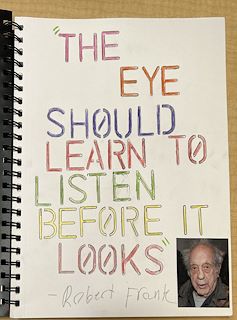 "THE
EYE
SHOULD
LEARN TO
LISTEN
BEFORE IT
LOOKS"
- Robert Frank